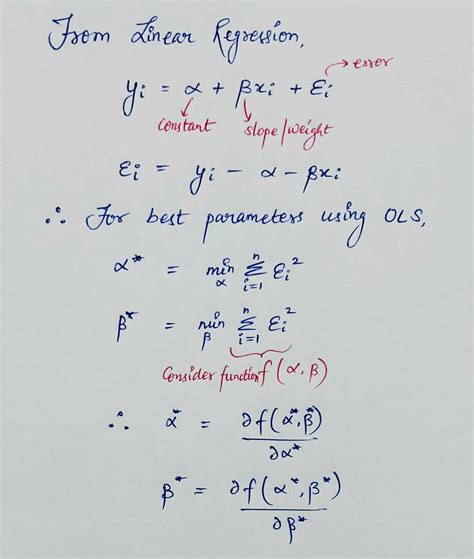 From Linear Regression,
yᵢ = α + βxᵢ + εᵢ → error
constant slope/weight
εᵢ = yᵢ − α − βxᵢ
∴ For best parameters using OLS,
α* = min_α Σᵢ₌₁ⁿ εᵢ²
β* = min_β Σᵢ₌₁ⁿ εᵢ²
Consider function f(α, β)
∴ α* = ∂f(α*, β*) / ∂α*
β* = ∂f(α*, β*) / ∂β*